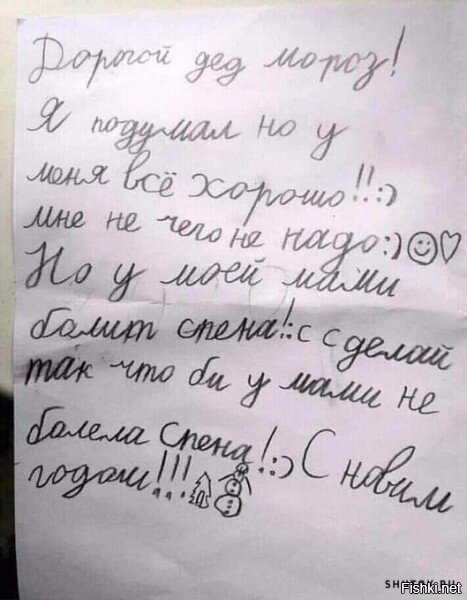 Дорогой дед мороз!
Я подумал но у
меня всё хорошо!!:)
мне не чего не надо:)☺♡
Но у моей мами
балит спена!:с сделай
так что би у мами не
балела спена!:) С новим
годом!!!
Fishki.net